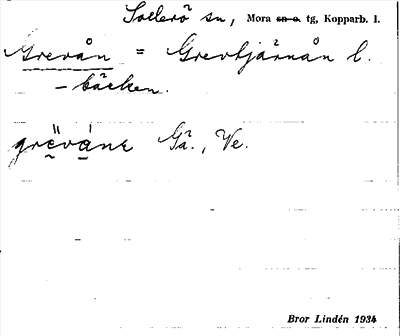 Sollerö sn, Mora sn o. tg, Kopparb. l.
Grevån = Grevtjärnån l.
-bäcken.
Gä., Ve.
Bror Lindén 1934